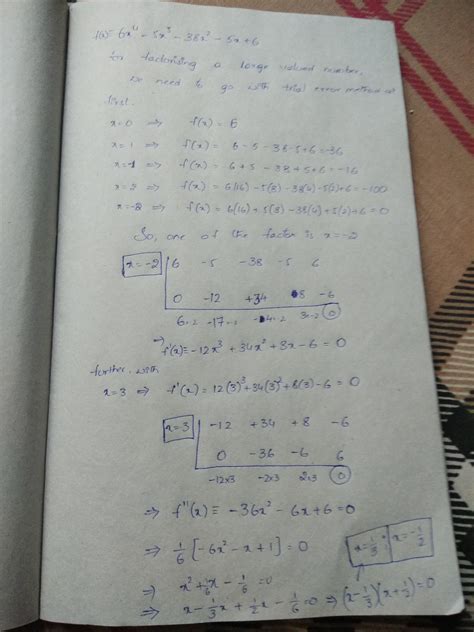 f(x) = 6x⁴ - 5x³ - 38x² - 5x + 6
for factorising a large valued number,
we need to go with trial error method at
first.
x=0 ⇒ f(x) = 6
x=1 ⇒ f(x) = 6-5-38-5+6 = -36
x=-1 ⇒ f(x) = 6+5-38+5+6 = -16
x=2 ⇒ f(x) = 6(16)-5(8)-38(4)-5(2)+6 = -100
x=-2 ⇒ f(x) = 6(16)+5(8)-38(4)+5(2)+6 = 0
So, one of the factor is x=-2
x=-2 6 -5 -38 -5 6
0 -12 +34 8 -6
6·-2 -17·-2 -4·-2 3·-2 0
⇒ f'(x) = -12x³ + 34x² + 8x - 6 = 0
further with
x=3 ⇒ f'(x) = 12(3)³+34(3)²+8(3)-6 = 0
x=3 -12 +34 +8 -6
0 -36 -6 6
-12×3 -2×3 2×3 0
⇒ f''(x) ≡ -36x² - 6x + 6 = 0
⇒ 1/6 [-6x² - x + 1] = 0
x=1/3; x=-1/2
⇒ x² + 1/6 x - 1/6 = 0
⇒ x - 1/3 x + 1/2 x - 1/6 = 0 ⇒ (x - 1/3)(x + 1/2) = 0